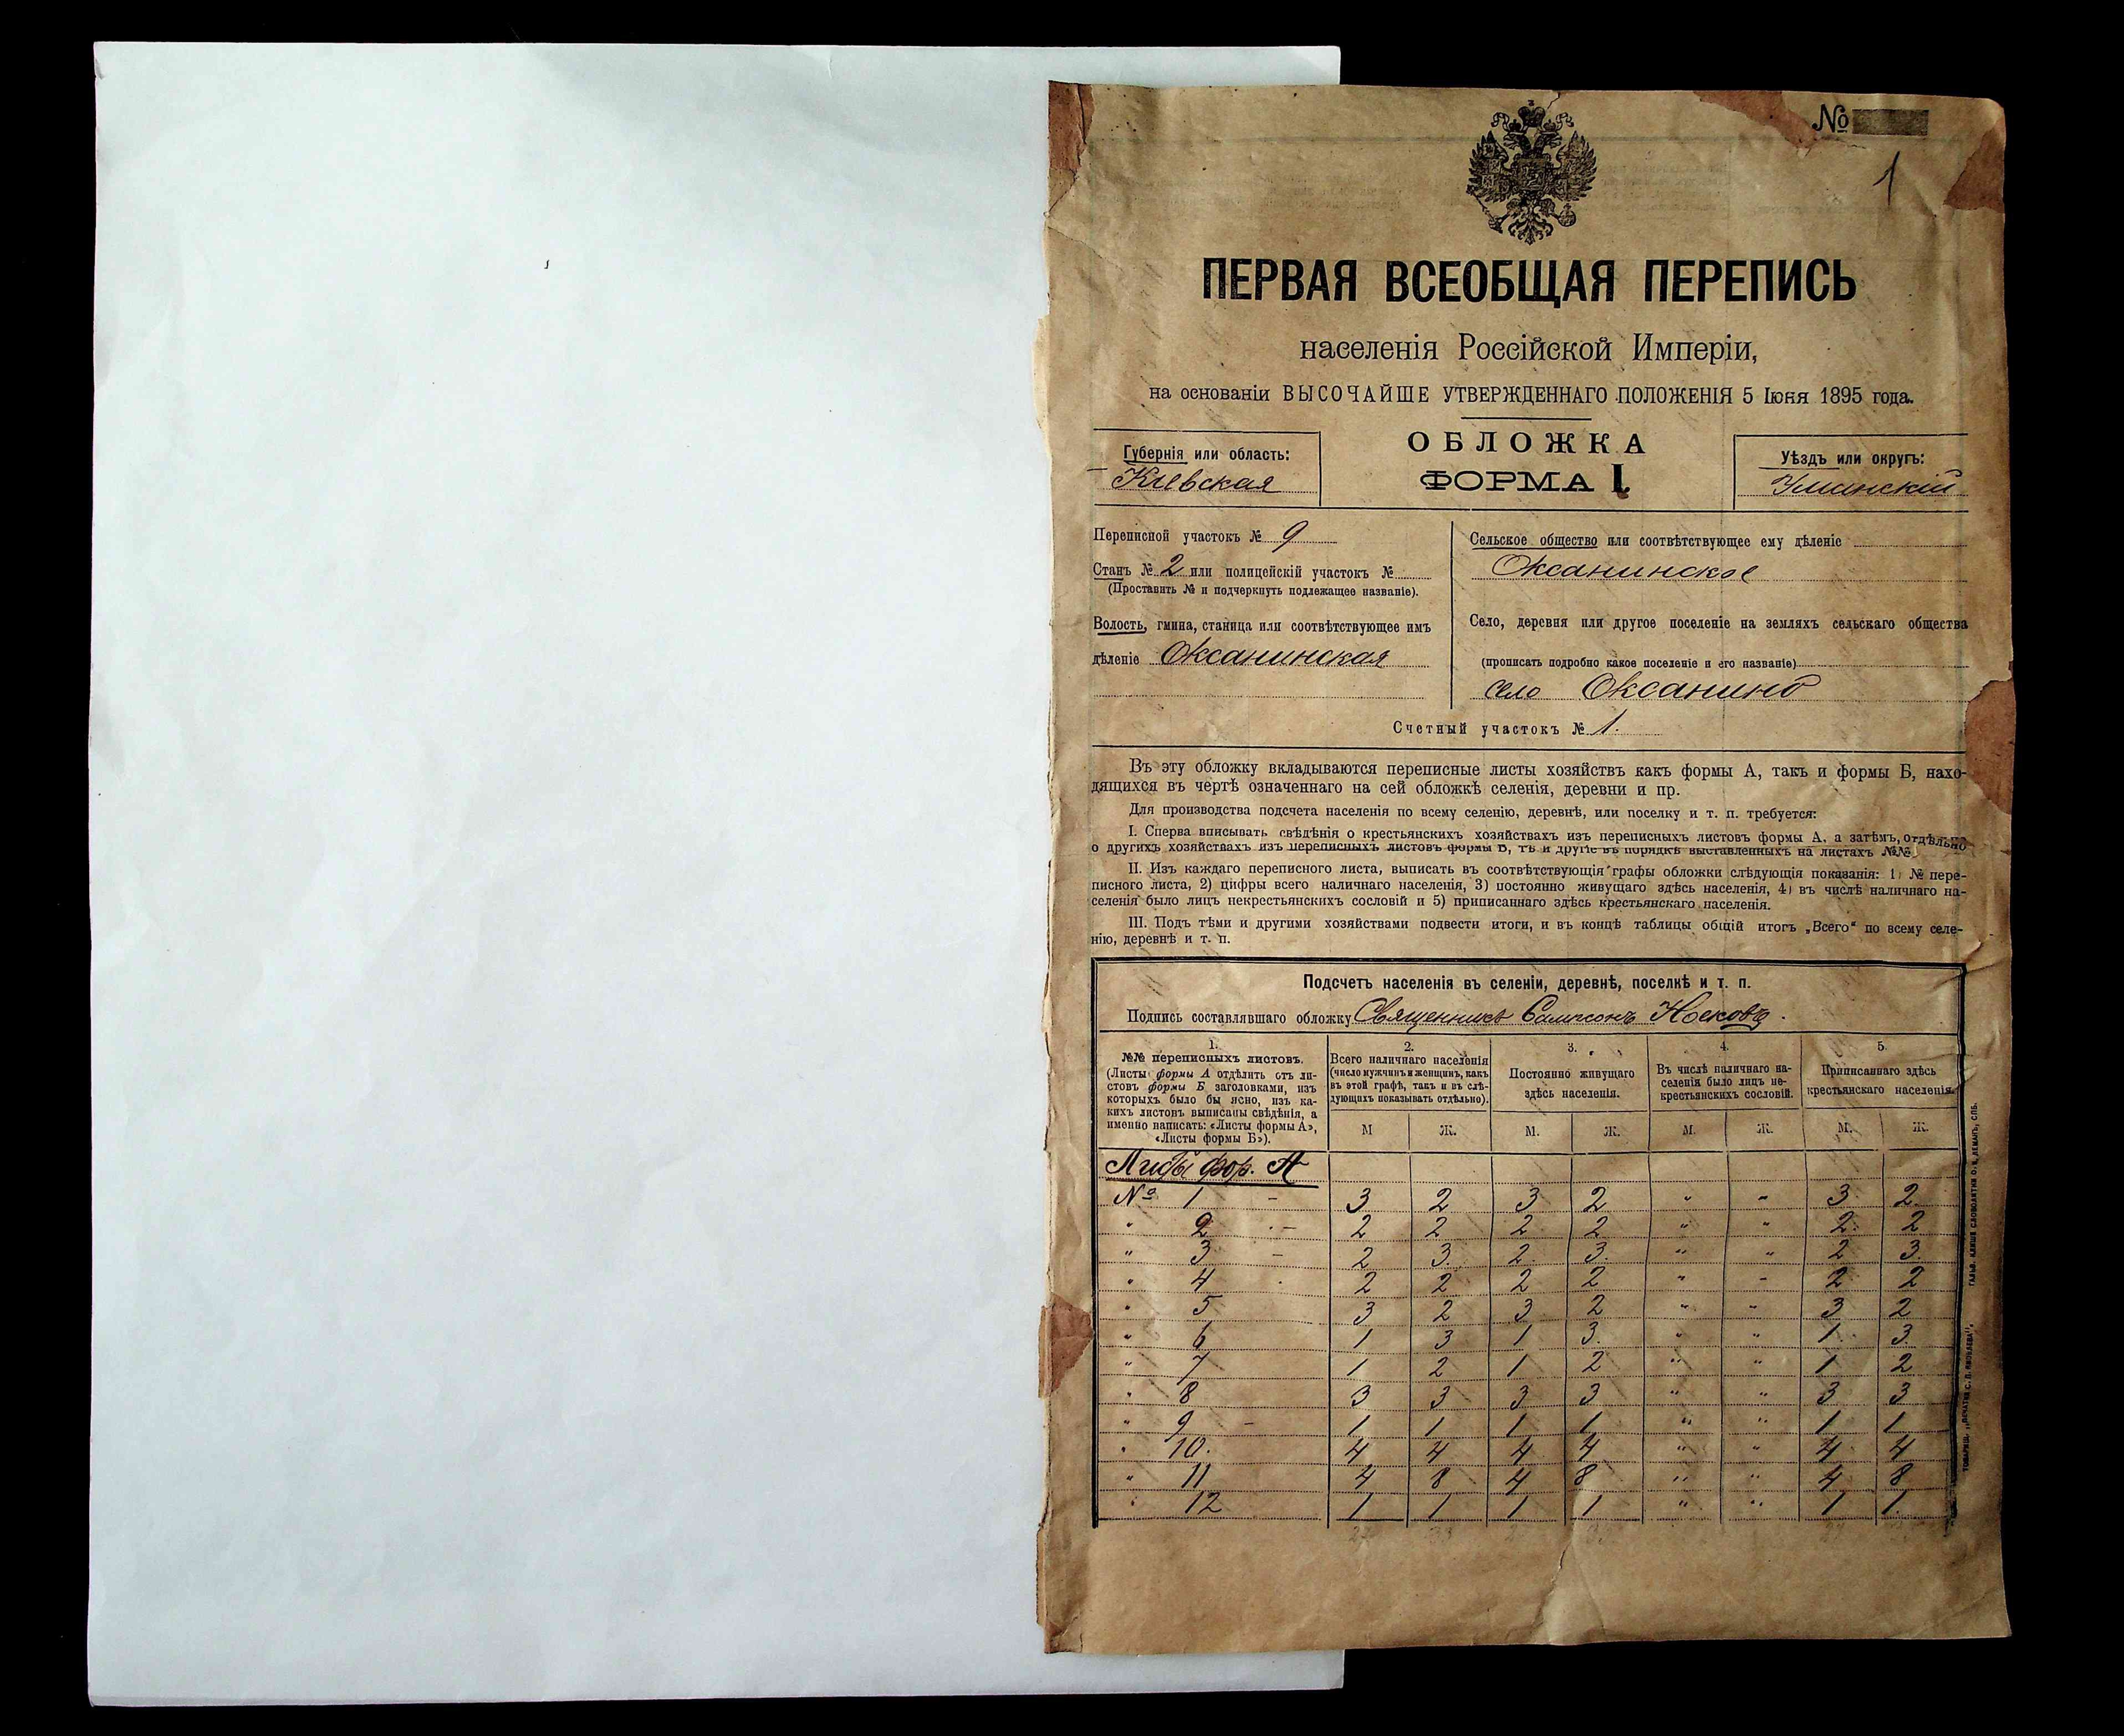 №
1
ПЕРВАЯ ВСЕОБЩАЯ ПЕРЕПИСЬ
населенія Россійской Имперіи,
на основаніи ВЫСОЧАЙШЕ УТВЕРЖДЕННАГО ПОЛОЖЕНІЯ 5 Іюня 1895 года.
ОБЛОЖКА
ФОРМА I.
Губернія или область:
Кіевская
Уѣздъ или округъ:
Уманскій
Переписной участокъ № 9
Станъ № 2 или полицейскій участокъ №
(Проставить № и подчеркнуть подлежащее названіе).
Волость, гмина, станица или соотвѣтствующее имъ
дѣленіе Оксанинская
Сельское общество или соотвѣтствующее ему дѣленіе
Оксанинское
Село, деревня или другое поселеніе на земляхъ сельскаго общества
(прописать подробно какое поселеніе и его названіе)
село Оксанино
Счетный участокъ № 1.
Въ эту обложку вкладываются переписные листы хозяйствъ какъ формы А, такъ и формы Б, нахо-
дящихся въ чертѣ означеннаго на сей обложкѣ селенія, деревни и пр.
Для производства подсчета населенія по всему селенію, деревнѣ, или поселку и т. п. требуется:
I. Сперва вписывать свѣдѣнія о крестьянскихъ хозяйствахъ изъ переписныхъ листовъ формы А, а затѣмъ, отдѣльно
о другихъ хозяйствахъ изъ переписныхъ листовъ формы Б, тѣ и другіе въ порядкѣ выставленныхъ на листахъ №№
II. Изъ каждаго переписного листа, выписать въ соотвѣтствующія графы обложки слѣдующія показанія: 1) № пере-
писного листа, 2) цифры всего наличнаго населенія, 3) постоянно живущаго здѣсь населенія, 4) въ числѣ наличнаго на-
селенія было лицъ некрестьянскихъ сословій и 5) приписаннаго здѣсь крестьянскаго населенія.
III. Подъ тѣми и другими хозяйствами подвести итоги, и въ концѣ таблицы общій итогъ „Всего“ по всему селе-
нію, деревнѣ и т. п.
Подсчетъ населенія въ селеніи, деревнѣ, поселкѣ и т. п.
Подпись составлявшаго обложку Священникъ Сампсонъ Носковъ.
1.
№№ переписныхъ листовъ.
(Листы формы А отдѣлить отъ ли-
стовъ формы Б заголовками, изъ
которыхъ было бы ясно, изъ ка-
кихъ листовъ выписаны свѣдѣнія, а
именно написать: «Листы формы А»,
«Листы формы Б»).
2.
Всего наличнаго населенія
(число мужчинъ и женщинъ, какъ
въ этой графѣ, такъ и въ слѣ-
дующихъ показывать отдѣльно).
3.
Постоянно живущаго
здѣсь населенія.
4.
Въ числѣ наличнаго на-
селенія было лицъ не-
крестьянскихъ сословій.
5.
Приписаннаго здѣсь
крестьянскаго населенія.
М Ж. М. Ж. М. Ж. М. Ж.
Листы фор. А
№ 1 - 3 2 3 2 " " 3 2
" 2 - 2 2 2 2 " " 2 2
" 3 - 2 3 2 3 " " 2 3
" 4 2 2 2 2 " " 2 2
" 5 3 2 3 2 " " 3 2
" 6 1 3 1 3 " " 1 3
" 7 1 2 1 2 " " 1 2
" 8 3 3 3 3 " " 3 3
" 9 - 1 1 1 1 " " 1 1
" 10. 4 4 4 4 " " 4 4
" 11 4 8 4 8 " " 4 8
" 12 1 1 1 1 " " 1 1